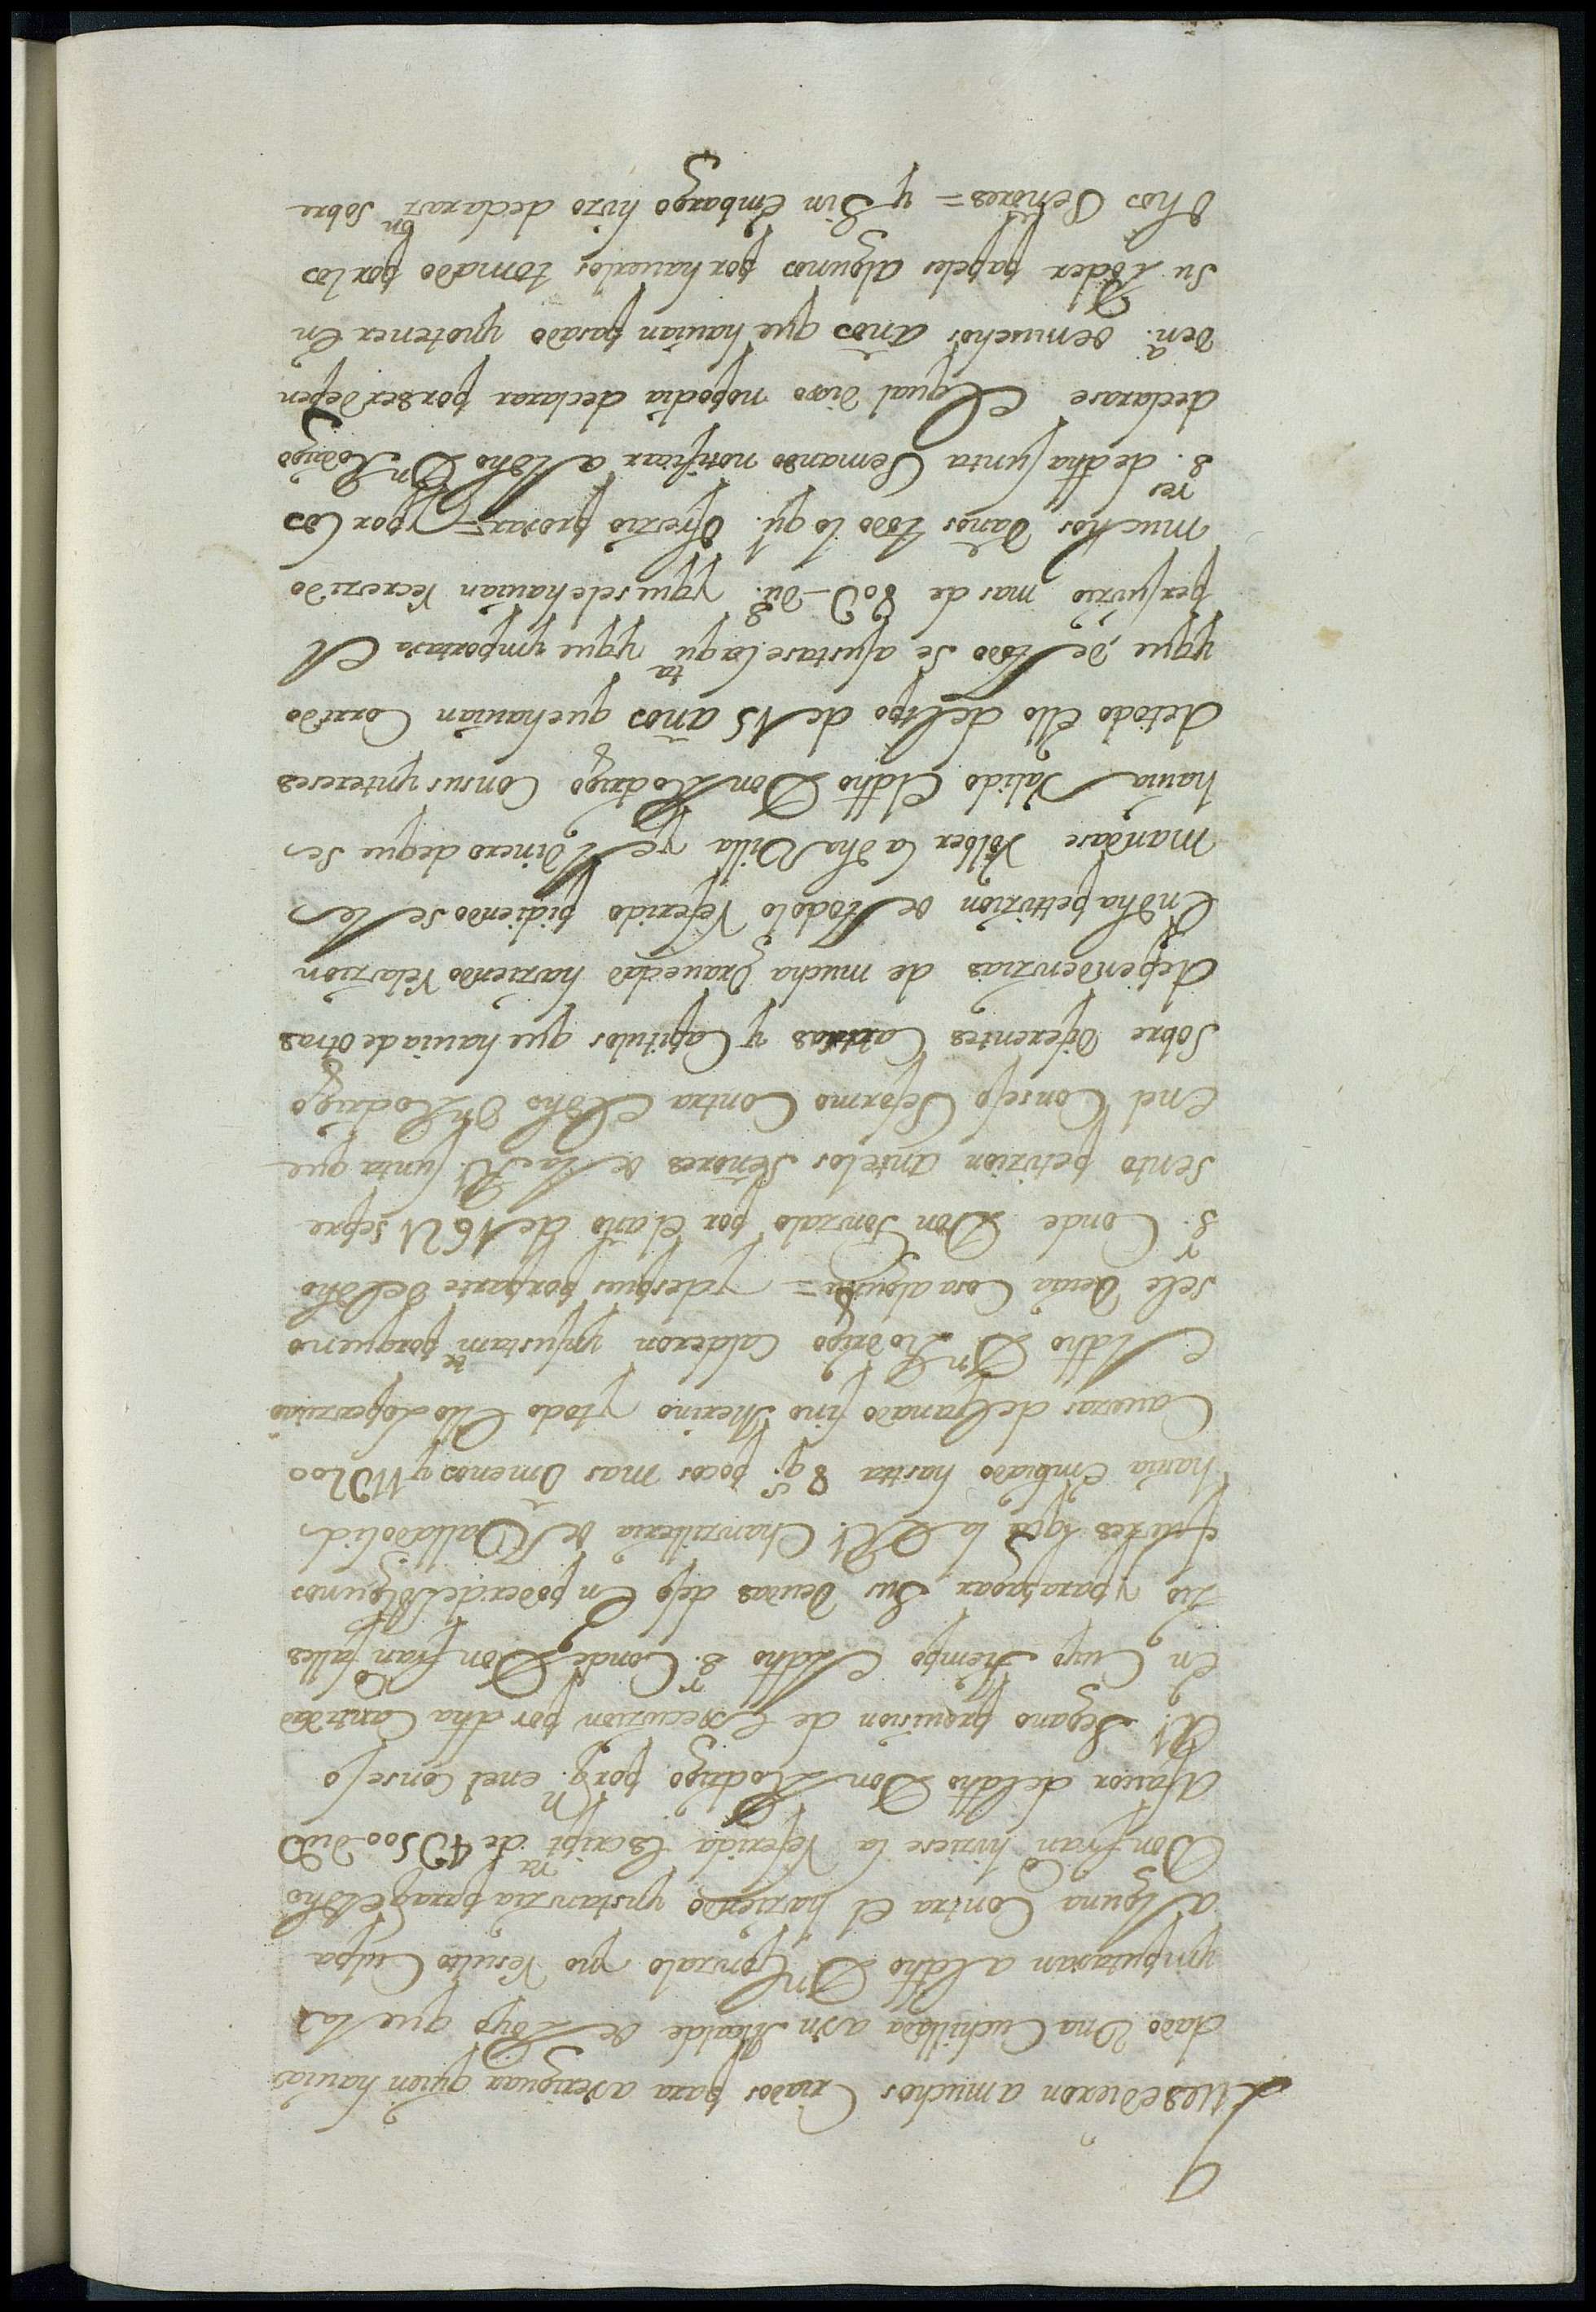 que se dieron a muchos Criados para aberiguar quien havia
dado Una Cuchillada a Un Alcalde de Loyo que la
ymputavan al dho Dn Gonzalo no resulto Culpa
alguna Contra el haziendo ynstanzia para q el dho
Don Franco hiziese la referida Escriptra de 4D500 dudos
A favor del dho Don Rodrigo por qn en el Consejo
Rl. Se gano provision de Execuzion por dha Cantidad
En Cuyo tiempo el dho Sr. Conde Don Franco falles
zio y para pagar Sus deudas dejo En poder de algunos
fuezes la Rl Chanzilleria de Valladolid
havia embiado hastta 8 qs. pocos mas o menos y 11D200
Cavezas de ganado fino Merino y todo Ello lo perzivio
El dho Dn Rodrigo Calderon ynjustamte porque no
se le devia Cosa alguna = y despues por parte del dho
Sr. Conde Don Gonzalo por el año de 1621 se pre
sento petizion ante los Señores de la Rl junta que
en el Consejo Se formo Contra el dho Dn Rodrigo
Sobre diferentes Cartas y Capitulos que havia de otras
dependenzias de mucha gravedad haziendo relazion
En dha pettizion de todo lo referido pidiendo se le
mandase volber la dha Villa y el dinero de que se
havia valido el dho Don Rodrigo Con sus yntereses
de todo Ello del tpo de 15 años que havian Corrido
y que de todo se ajustase la qta y que ymportava el
perjuizio mas de 80D dus. y que se le havian recrezido
muchos daños todo lo qual ofrezio provar = y por los
Sres. de dha junta Se mando notificar al dho Dn Rodrigo
declarase el qual dixo no podia declarar por ser depen
dena. de muchos años que havian pasado y no tener en
su Poder papeles algunos por haverlos tomado por los
dhos Señores = y Sin Embargo hizo declaraon sobre